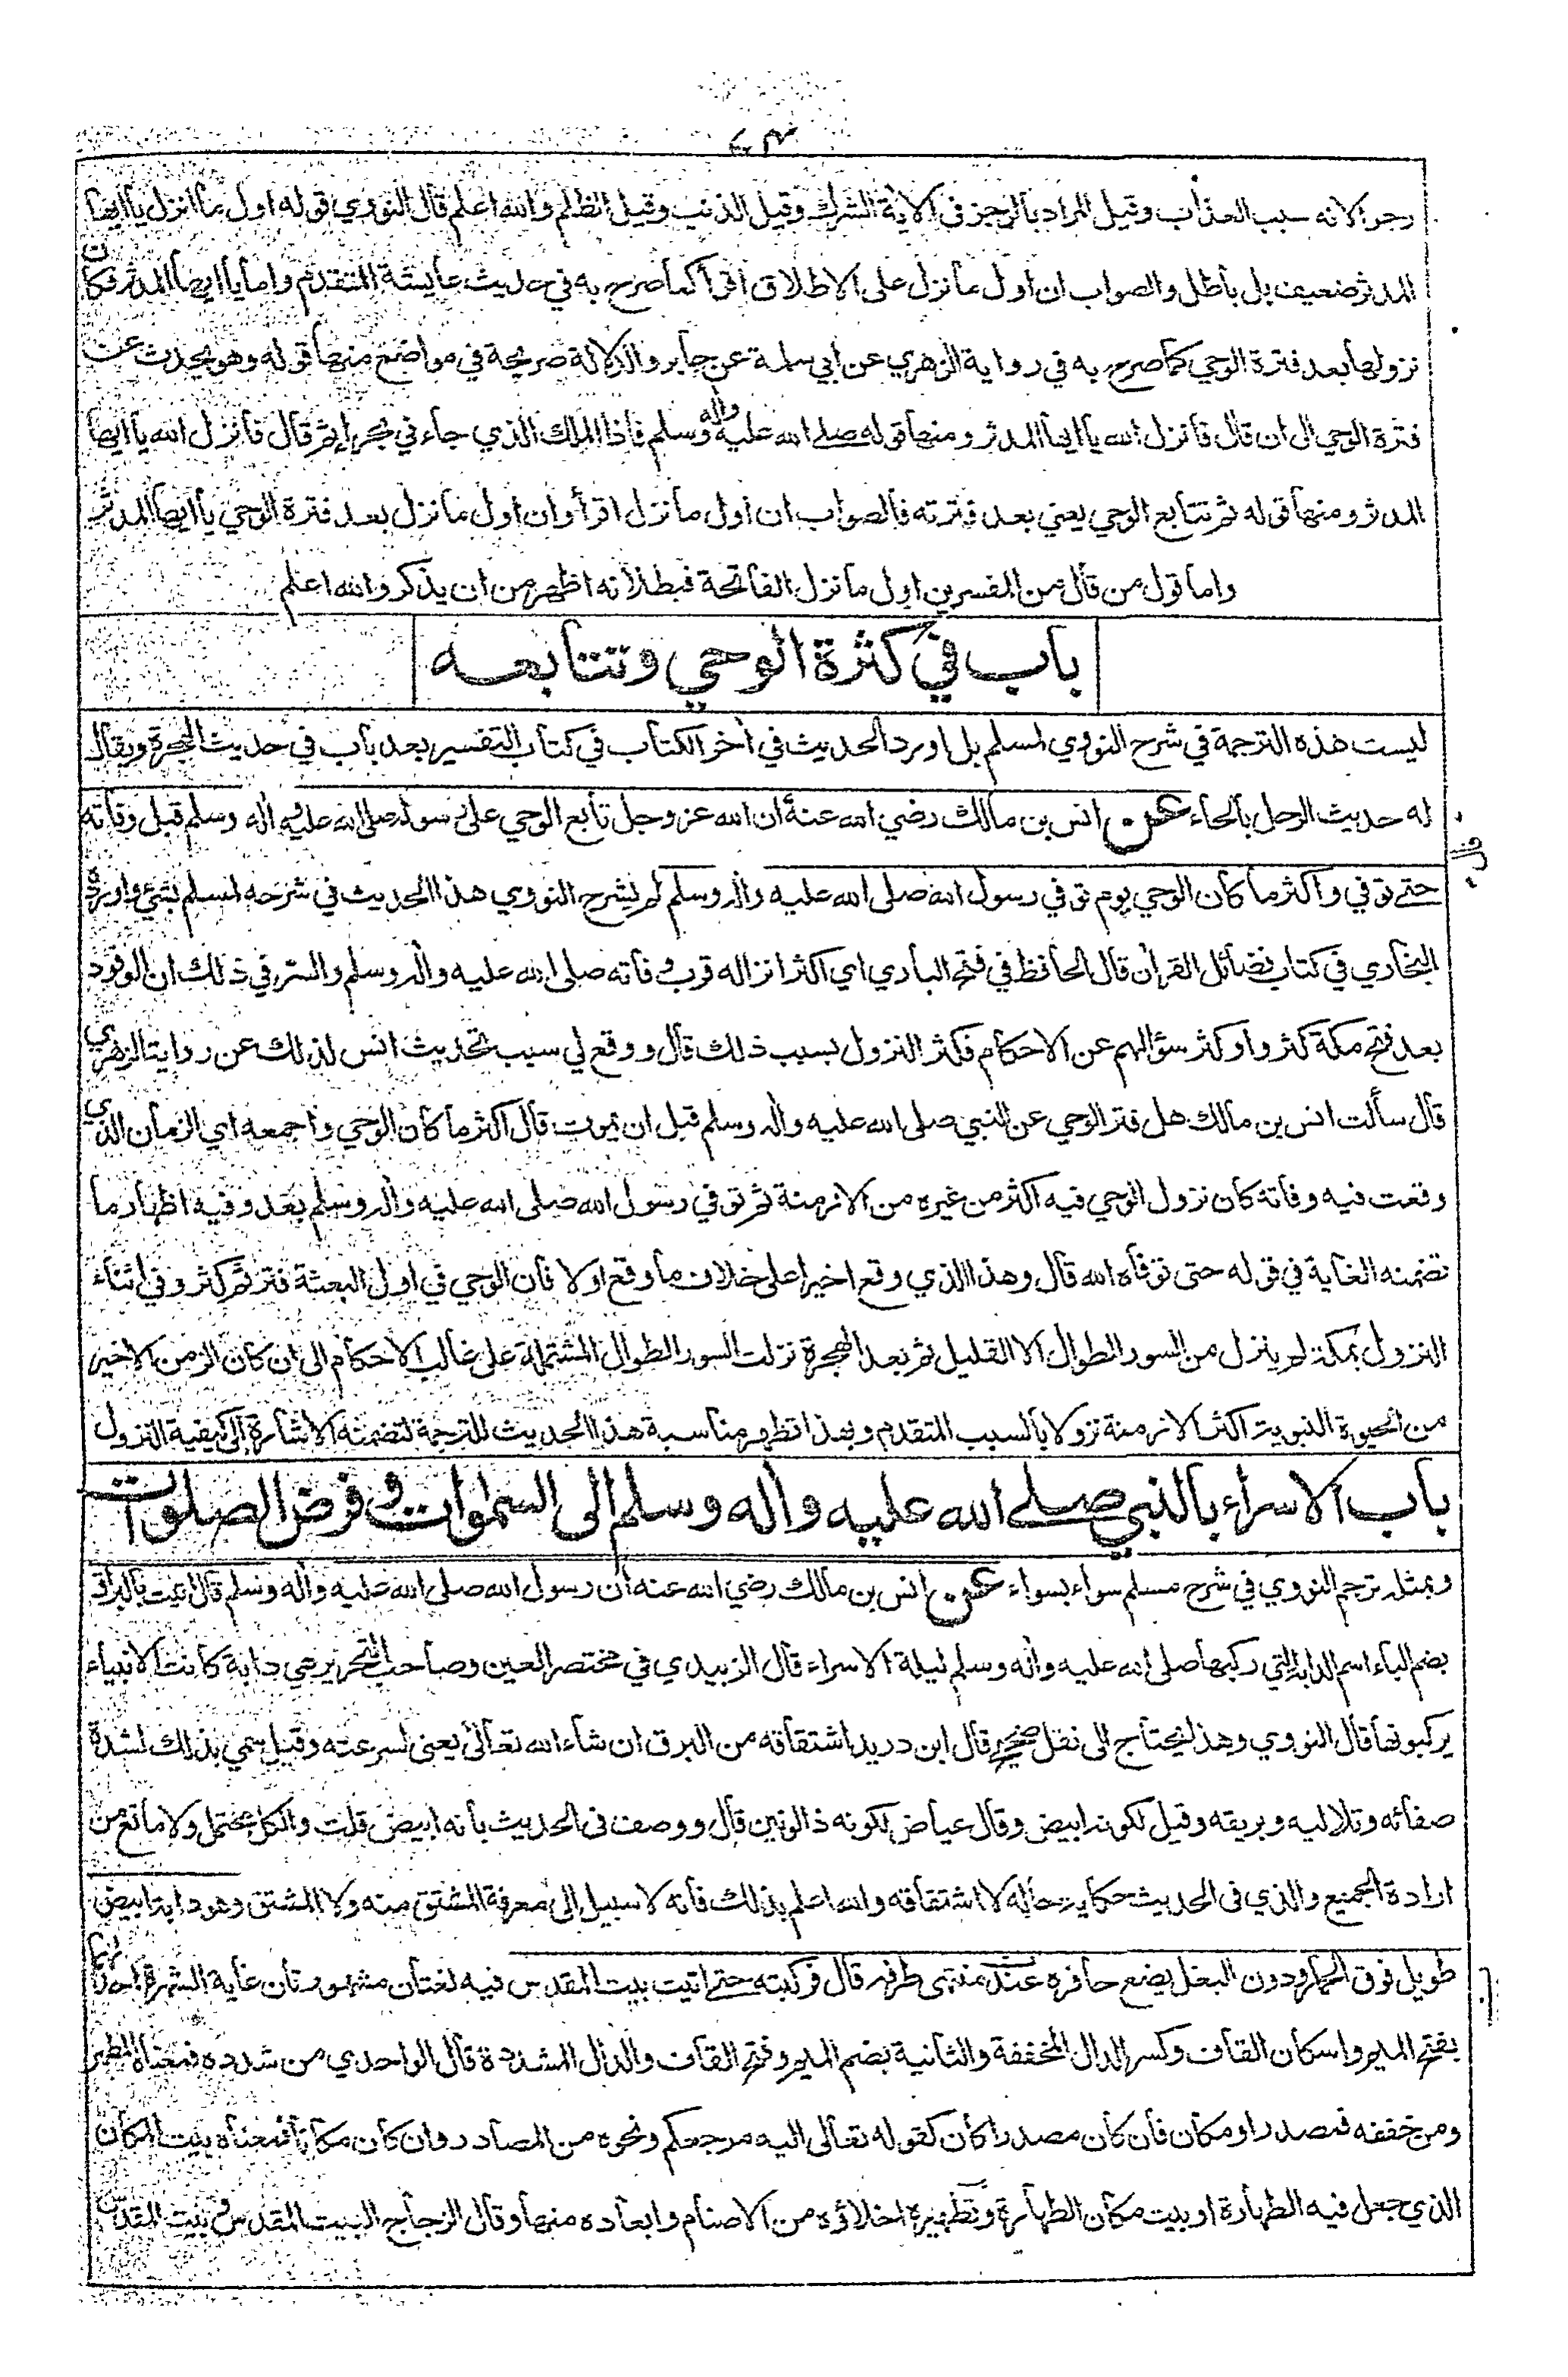 رجزا لانه سبب العذاب وقيل المراد بالرجز في الاية الشرك وقيل الذنب وقيل الظلم والله اعلم قال النووي قوله اول ما انزل يا ايها
المدثر ضعيف بل باطل والصواب ان اول ما نزل على الاطلاق اقرأ كما صرح به في حديث عايشة المتقدم واما يا ايها المدثر فكان
نزولها بعد فترة الوحي كما صرح به في رواية الزهري عن ابي سلمة عن جابر والدلالة صريحة في مواضع منها قوله وهو يحدث عن
فترة الوحي الى ان قال فانزل الله يا ايها المدثر ومنها قوله صلى الله عليه واله وسلم فاذا الملك الذي جاءني بحراء ثم قال فانزل الله يا ايها
المدثر ومنها قوله ثم تتابع الوحي يعني بعد فترته فالصواب ان اول ما نزل اقرأ وان اول ما نزل بعد فترة الوحي يا ايها المدثر
واما قول من قال من المفسرين اول ما نزل الفاتحة فبطلانه اظهر من ان يذكر والله اعلم
باب في كثرة الوحي وتتابعه
ليست هذه الترجمة في شرح النووي لمسلم بل اورد الحديث في أخر الكتاب في كتاب التفسير بعد باب في حديث الهجرة ويقال
له حديث الرحل بالحاء عن انس بن مالك رضي الله عنه ان الله عز وجل تابع الوحي على رسوله صلى الله عليه واله وسلم قبل وفاته
قال
حتى توفي واكثر ما كان الوحي يوم توفي رسول الله صلى الله عليه واله وسلم لم يشرح النووي هذا الحديث في شرحه لمسلم بشيء واورده
البخاري في كتاب فضائل القرأن قال الحافظ في فتح الباري اي اكثر انزاله قرب وفاته صلى الله عليه واله وسلم والسر في ذلك ان الوفود
بعد فتح مكة كثروا وكثر سؤالهم عن الاحكام فكثر النزول بسبب ذلك قال ووقع لي سبب تحديث انس لذلك عن رواية الزهري
قال سألت انس بن مالك هل فتر الوحي عن النبي صلى الله عليه واله وسلم قبل ان يموت قال اكثر ما كان الوحي واجمعه اي الزمان الذي
وقعت فيه وفاته كان نزول الوحي فيه اكثر من غيره من الازمنة ثم توفي رسول الله صلى الله عليه واله وسلم بعد وفيه اظهار ما
تضمنه الغاية في قوله حتى توفاه الله قال وهذا الذي وقع اخيرا على خلاف ما وقع اولا فان الوحي في اول البعثة فتر ثم كثر وفي اثناء
النزول بمكة لم ينزل من السور الطوال الا القليل ثم بعد الهجرة نزلت السور الطوال المشتملة على غالب الاحكام الى ان كان الزمن الاخير
من الحيوة النبوية اكثر الازمنة نزولا بالسبب المتقدم وبهذا تظهر مناسبة هذا الحديث للترجمة لتضمنه الاشارة الى كيفية النزول
باب الاسراء بالنبي صلى الله عليه واله وسلم الى السموات وفرض الصلوات
وبمثله ترجم النووي في شرح مسلم سواء بسواء عن انس بن مالك رضي الله عنه ان رسول الله صلى الله عليه واله وسلم قال اتيت بالبراق
بضم الباء اسم الدابة التي ركبها صلى الله عليه واله وسلم ليلة الاسراء قال الزبيدي في مختصر العين وصاحب التحرير هي دابة كانت الانبياء
يركبونها قال النووي وهذا يحتاج الى نقل صحيح قال ابن دريد اشتقاقه من البرق ان شاء الله تعالى يعني لسرعته وقيل سمي بذلك لشدة
صفائه وتلاليه وبريقه وقيل لكونه ابيض وقال عياض لكونه ذا لونين قال ووصف في الحديث بانه ابيض قلت والكل محتمل ولا مانع من
ارادة الجميع والذي في الحديث حكاية حاله لا اشتقاقه والله اعلم بذلك فانه لا سبيل الى معرفة المشتق منه ولا المشتق وهو دابة ابيض
طويل فوق الحمار ودون البغل يضع حافره عند منتهى طرفه قال فركبته حتى اتيت بيت المقدس فيه لغتان مشهورتان غاية الشهرة احداهما
بفتح الميم واسكان القاف وكسر الدال المخففة والثانية بضم الميم وفتح القاف والدال المشددة قال الواحدي من شدده فمعناه المطهر
ومن خففه فمصدر او مكان فان كان مصدرا كان كقوله تعالى اليه مرجعكم ونحوه من المصادر وان كان مكانا فمعناه بيت المكان
الذي جعل فيه الطهارة او بيت مكان الطهارة وتطهيره اخلاؤه من الاصنام وابعاده منها وقال الزجاج البيت المقدس وبيت المقدس